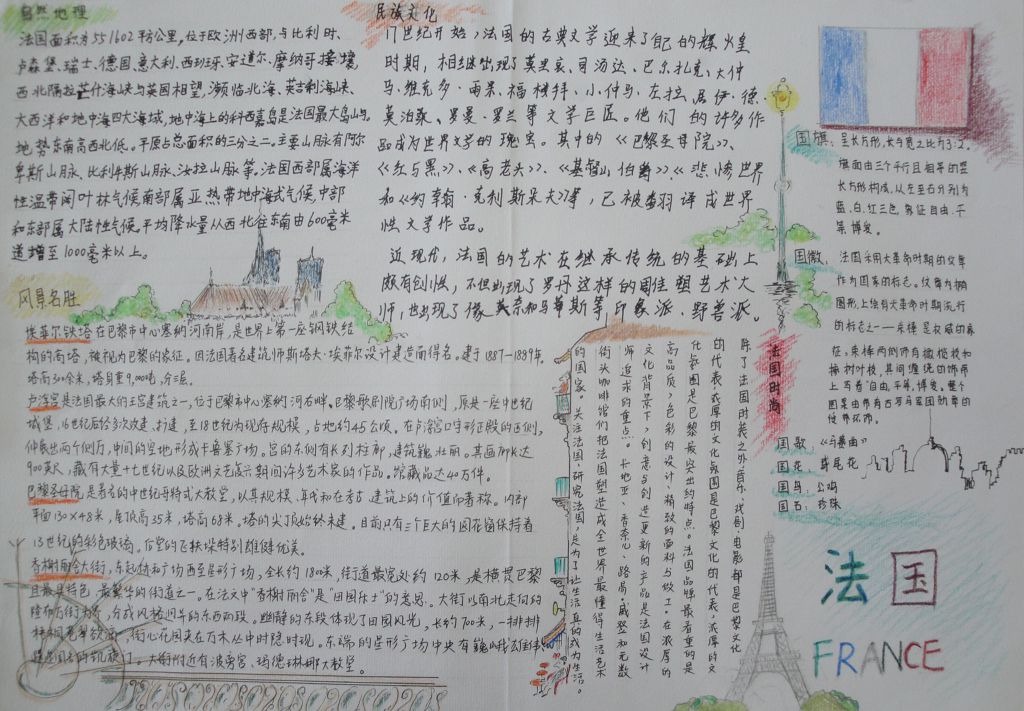 自然地理
法国面积为551602平方公里，位于欧洲西部，与比利时、
卢森堡、瑞士、德国、意大利、西班牙、安道尔、摩纳哥接壤，
西北隔拉芒什海峡与英国相望，濒临北海、英吉利海峡、
大西洋和地中海四大海域，地中海上的科西嘉岛是法国最大岛屿。
地势东南高西北低。平原占总面积的三分之二。主要山脉有阿尔
卑斯山脉、比利牛斯山脉、汝拉山脉等。法国西部属海洋
性温带阔叶林气候，南部属亚热带地中海式气候，中部
和东部属大陆性气候。平均降水量从西北往东南由600毫米
递增至1000毫米以上。
风景名胜
埃菲尔铁塔在巴黎市中心塞纳河南岸，是世界上第一座钢铁结
构的高塔，被视为巴黎的象征。因法国著名建筑师斯塔夫·埃菲尔设计建造而得名。建于1887—1889年。
塔高300余米，塔身重9,000吨，分三层。
卢浮宫是法国最大的王宫建筑之一，位于巴黎市中心塞纳河右畔、巴黎歌剧院广场南侧，原是一座中世纪
城堡，16世纪后经多次改建、扩建，至18世纪为现存规模，占地约45公顷。在卢浮宫口字形正殿的西侧，
伸展出两个侧厅，中间的空地形成卡鲁塞广场。宫的东侧有长列柱廊，建筑巍壮丽。其画廊长达
900英尺，藏有大量十七世纪以及欧洲文艺复兴期间许多艺术家的作品。馆藏品达40万件。
巴黎圣母院是著名的中世纪哥特式大教堂，以其规模、年代和在考古、建筑上的价值而著称。内部
平面130×48米，屋顶高35米，塔高68米。塔的尖顶始终未建。目前只有三个巨大的圆花窗保持着
13世纪的彩色玻璃。后堂的飞扶垛特别雄健优美。
香榭丽舍大街，东起协和广场西至星形广场，全长约1800米，街道最宽处约120米，是横贯巴黎
且最具特色、最繁华的街道之一。在法文中“香榭丽舍”是“田园乐土”的意思。大街以南北走向的
隆布瓦街为界，分成风格迥异的东西两段。幽静的东段体现了田园风光，长约700米，一排排
街心花园夹在万木丛中时隐时现。东端的星形广场中央有巍峨
门。大街附近有波旁宫、玛德琳娜大教堂。
民族文化
17世纪开始，法国的古典文学迎来了自己的辉煌
时期，相继出现了莫里哀、司汤达、巴尔扎克、大仲
马、维克多·雨果、福楼拜、小仲马、左拉、居伊·德·
莫泊桑、罗曼·罗兰等文学巨匠。他们的许多作
品成为世界文学的瑰宝。其中的《巴黎圣母院》、
《红与黑》、《高老头》、《基督山伯爵》、《悲惨世界》
和《约翰·克利斯朵夫》等，已被翻译成世界
性文学作品。
近现代，法国的艺术在继承传统的基础上
颇有创新，不但出现了罗丹这样的雕塑艺术大
师，也出现了像莫奈和马蒂斯等印象派、野兽派。
法国时尚
除了法国时装之外音乐、戏剧、电影都是巴黎文化
的代表，浓厚的文化氛围是巴黎文化的代表，浓厚的文
化氛围是巴黎最突出的特点。法国品牌最看重的是
高品质，色彩的设计、精致的面料与做工，在浓厚的
文化背景下，创意与创造更新的产品是法国设计
师追求的重点。卡地亚、香奈儿、路易·威登和无数
街头咖啡馆们把法国塑造成全世界最懂得生活艺术
的国家。关注法国，研究法国，是为了让生活真的成为生活。
国旗：呈长方形，长与宽之比为3:2。
旗面由三个平行且相等的竖
长方形构成，从左至右分别为
蓝、白、红三色，象征自由、平
等、博爱。
国徽：法国采用大革命时期的纹章
作为国家的标志。纹章为椭
圆形，上绘有大革命时期流行
的标志之一——束棒，是权威的象
征，束棒两侧饰有橄榄枝和
橡树叶枝，其间缠绕的饰带
上写着“自由、平等、博爱”。整个
图案由带有古罗马军团勋章的
绶带环饰。
国歌：《马赛曲》
国花：鸢尾花
国鸟：公鸡
国石：珍珠
法国
FRANCE